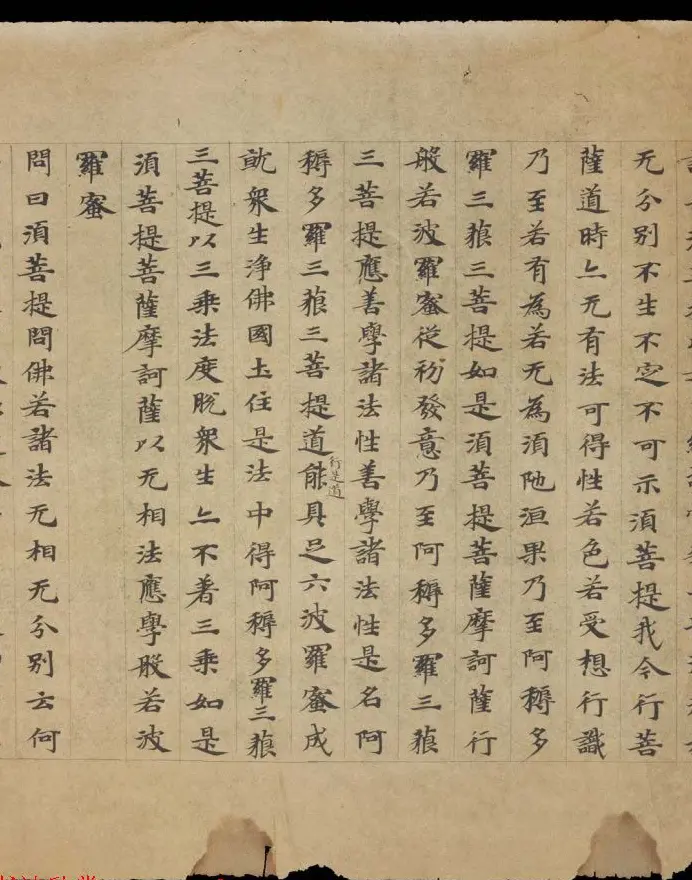 无分别不生不㝎不可示湏菩提我今行菩
薩道時亠无有法可得性若色若受想行識
乃至若有為若无為湏陁洹果乃至阿耨多
羅三藐三菩提如是湏菩提菩薩摩訶薩行
般若波羅蜜從初發意乃至阿耨多羅三藐
三菩提應善學諸法性善學諸法性是名阿
耨多羅三藐三菩提道行是道能具足六波羅蜜成
就衆生淨佛國土住是法中得阿耨多羅三藐
三菩提以三乘法度脫衆生亠不著三乘如是
湏菩提菩薩摩訶薩以无相法應學般若波
羅蜜
問曰湏菩提問佛若諸法无相无分别云何